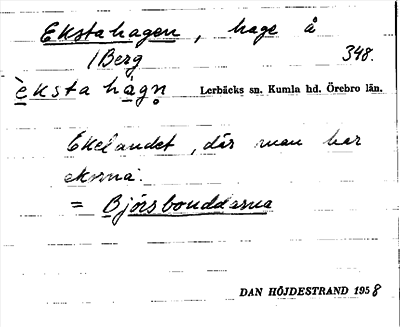 Ekstahagen, hage å
/Berg 348.
è̱ksta ha̱gn̥ Lerbäcks sn. Kumla hd. Örebro län.
Ekelandet, där man har
ekorna.
= Björsbouddarna
DAN HÖJDESTRAND 1958